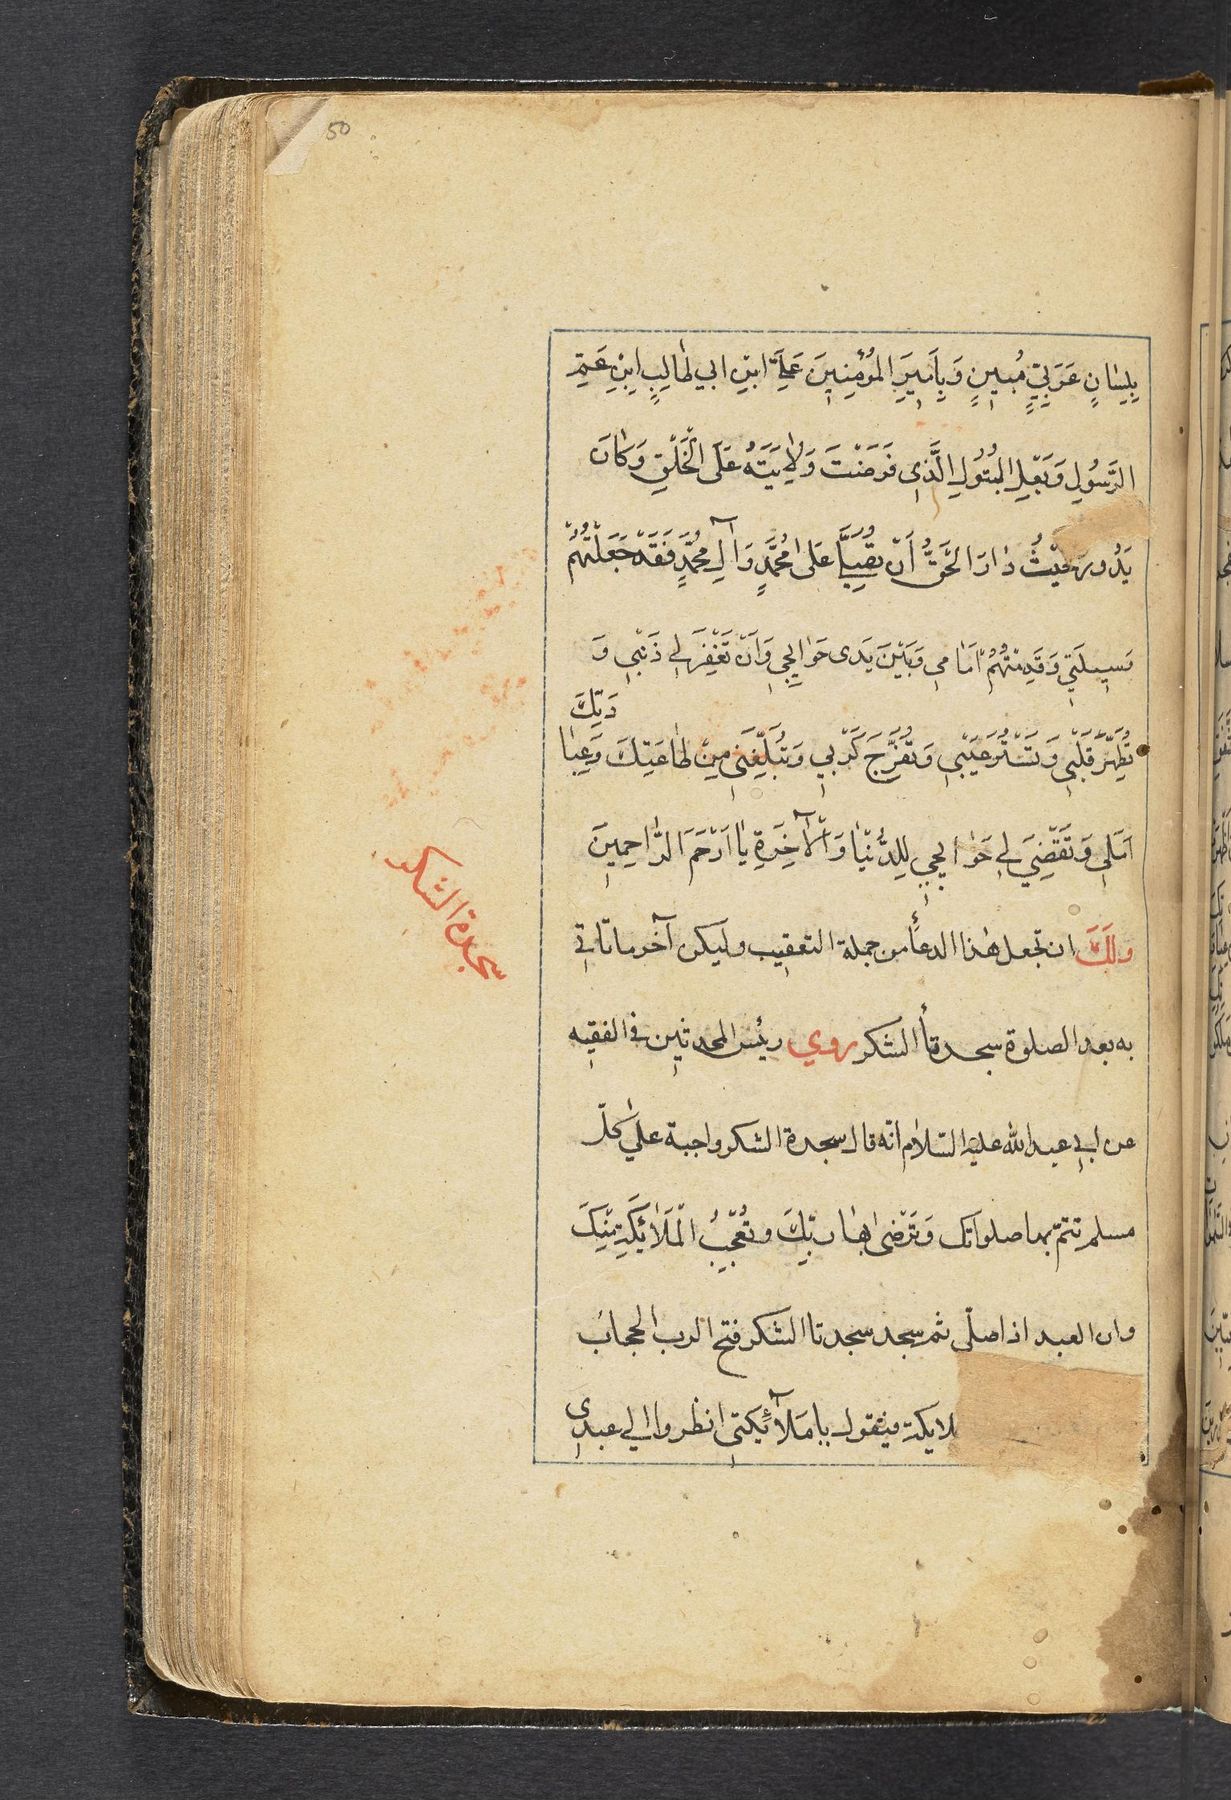 50
بِلِسٰانٍ عَرَبِيٍّ مُبينٍ وَبِاَميرِ المُؤْمِنينَ عَلِيِّ ابْنِ ابي طٰالِبٍ ابْنِ عَمِّ
الرَّسُولِ وَبَعْلِ البَتُولِ الَّذي فَرَضْتَ وَلٰايَتَهُ عَلَى الْخَلْقِ وَكٰانَ
يَدُورُ حَيْثُ دٰارَ الحَقُّ أَنْ تُصَلِّيَ عَلىٰ مُحَمَّدٍ وَآلِ مُحَمَّدٍ فَقَدْ جَعَلْتُهُمْ
وَسيلَتي وَقَدَّمْتُهُمْ اَمٰامي وَبَيْنَ يَدى حَوٰائِجي وَاَنْ تَغْفِرَ لي ذَنْبي وَ
تُطَهِّرَ قَلْبي وَتَسْتُرَ عَيْبي وَتُفَرِّجَ كَرْبي وَتُبَلِّغَني مِنْ طٰاعَتِكَ وَعِبٰا
دَتِكَ
اَمَلي وَتَقْضِيَ لي حَوٰائِجي لِلدُّنْيٰا وَالْآخِرَةِ يٰا اَرْحَمَ الرّٰاحِمينَ
ولَكَ ان تجعل هٰذا الدعأ من جملة التعقيب وليكن آخر ما تأتي
به بعد الصلوة سجدتا الشكر روي رئيس المحدثين في الفقيه
عن ابي عبد الله عليه السّلام انّه قال سجدة الشكر واجبة علىٰ كلّ
مسلم تتمّ بها صلواتك وَتَرْضىٰ بها ربّكَ وتُعَجِّبُ الْمَلٰائِكَةِ مِنْكَ
وان العبد اذا صلّى ثم سجد سجدتا الشكر فتح الرب الحجاب
لايكة فيقول يا مَلآئِكَتي انظروا الي عبدي
سجدة الشكر